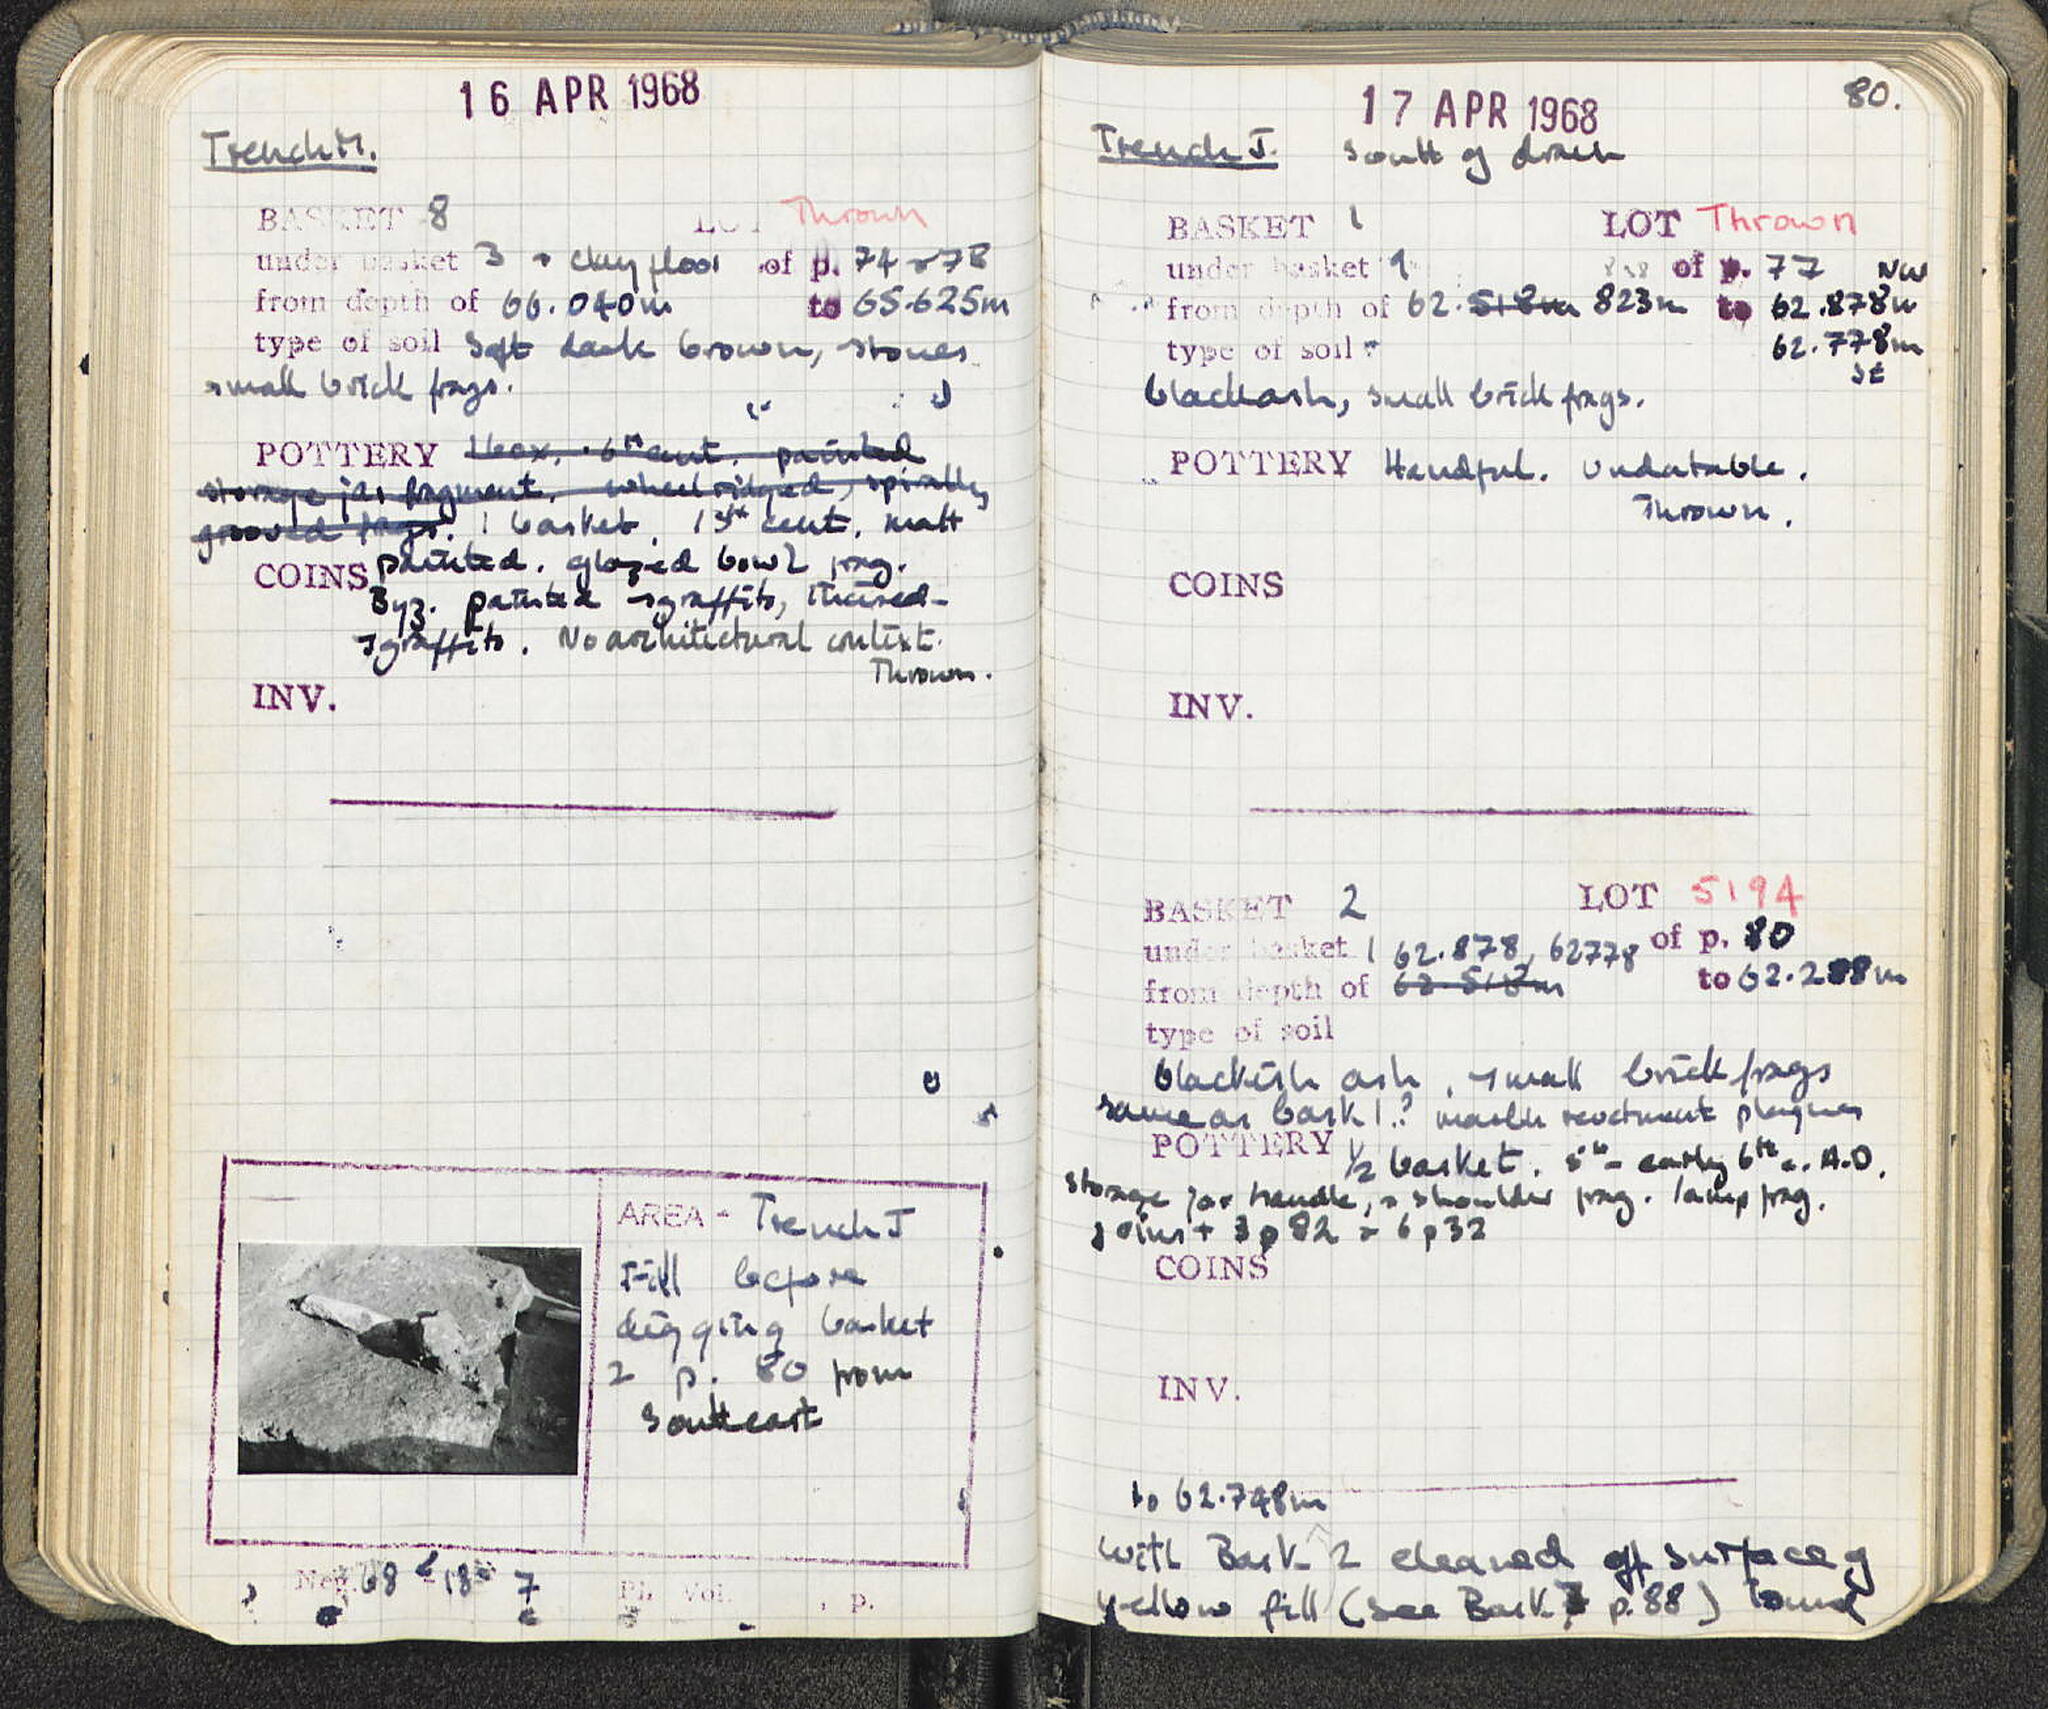 16 APR 1968
Trench M.
BASKET 8 LOT Thrown
under basket 3 + clay floor of p. 74 + 78
from depth of 66.040m to 65.625m
type of soil Soft dark brown, stones
small brick frags.
POTTERY 1 box, 6th cent. painted
storage jar fragment, wheel ridged, spirally
grooved frags. 1 basket. 13th cent. matt
painted. glazed bowl frag.
COINS
Byz. painted sgraffito, incised-
sgraffito. No architectural context.
Thrown.
INV.
AREA - Trench J
Fill before
digging basket
2 p. 80 from
Southeast
Neg. 68-18-7 Pl. Vol. , p.
80.
17 APR 1968
Trench J. South of drain
BASKET 1 LOT Thrown
under basket 9 of p. 77 NW
from depth of 62.518m 823m to 62.878m
type of soil 62.778m
SE
black ash, small brick frags.
POTTERY Handful. Undatable.
Thrown.
COINS
INV.
BASKET 2 LOT 5194
under basket 1 62.878, 62778 of p. 80
from depth of 62.518m to 62.288m
type of soil
blackish ash, small brick frags
same as bask 1.? marble revetment plaques
POTTERY 1/2 basket. 5th - early 6th c. A.D.
storage jar handle, + shoulder frag. lamp frag.
joins + 3 p 82 + 6 p 32
COINS
INV.
to 62.748m
with Bask 2 cleaned off surface of
yellow fill (see Bask 3 p. 88) found